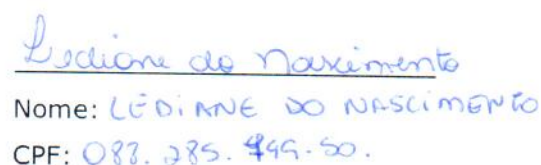 Lediane do Nascimento
Nome: LEDIANE DO NASCIMENTO
CPF: